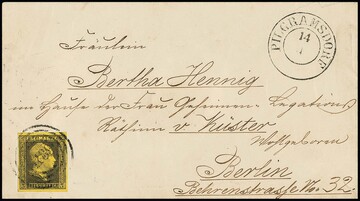 PILGRAMSDORF
14
Fräulein
Bertha Hennig
im Hause der Frau Geheimen-Legations
Räthinn v Küster
Wohlgeboren
Berlin
Behrenstrasse No. 32.
FREIMARKE